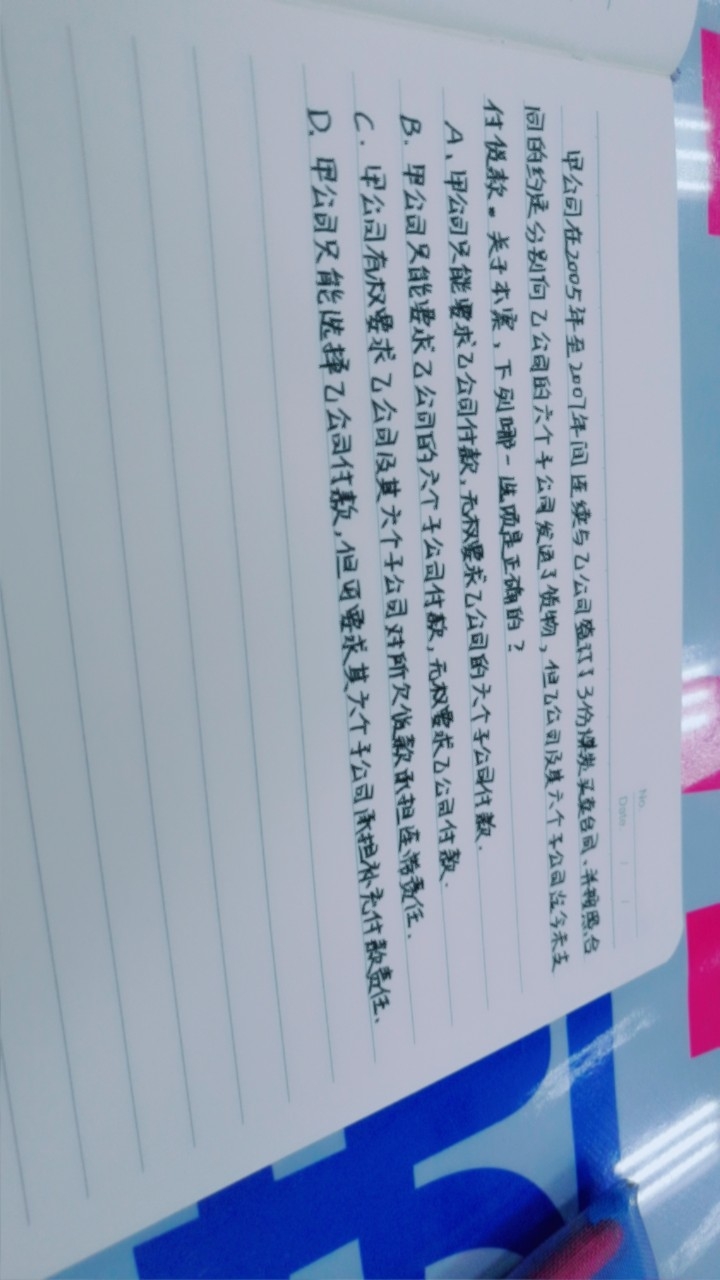 No.
Date / /
甲公司在2005年至2007年间连续与乙公司签订了3份煤炭买卖合同,并按照合
同的约定分别向乙公司的六个子公司发运了货物,但乙公司及其六个子公司迄今未支
付货款。关于本案,下列哪一选项是正确的?
A、甲公司只能要求乙公司付款,无权要求乙公司的六个子公司付款.
B. 甲公司只能要求乙公司的六个子公司付款,无权要求乙公司付款.
C. 甲公司有权要求乙公司及其六个子公司对所欠货款承担连带责任.
D. 甲公司只能选择乙公司付款,但可要求其六个子公司承担补充付款责任.